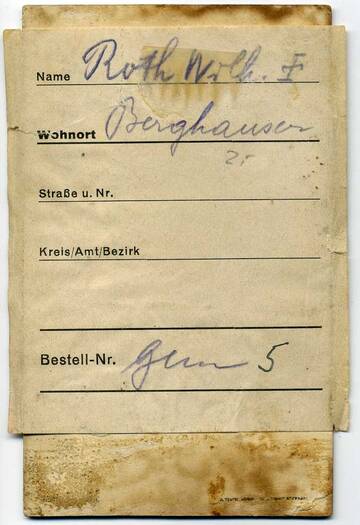 Name Roth Wilh. I
Wohnort Berghausen
Straße u. Nr.
Kreis/Amt/Bezirk
Bestell-Nr. Gem 5